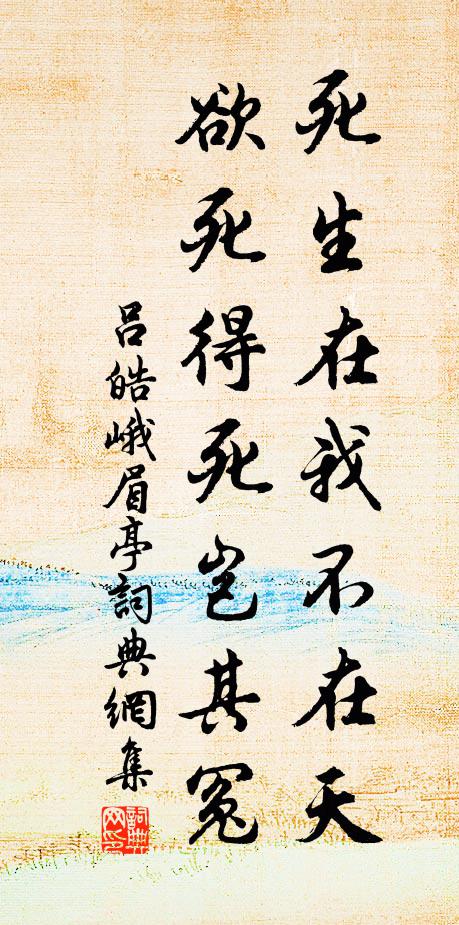 死生在我不在天
欲死得死岂其冤
吕皓峨眉亭詞典網集
詞典网印